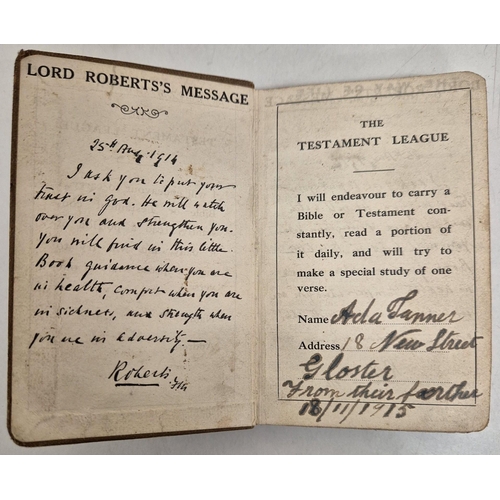 LORD ROBERTS'S MESSAGE
25th Aug. 1914
I ask you to put your
trust in God. He will watch
over you and strengthen you.
You will find in this little
Book guidance when you are
in health, comfort when you are
in sickness, and strength when
you are in adversity.—
Roberts
THE
TESTAMENT LEAGUE
I will endeavour to carry a
Bible or Testament con-
stantly, read a portion of
it daily, and will try to
make a special study of one
verse.
Name Ada Tanner
Address 18 New Street
Gloster
From their farther
18/11/1915